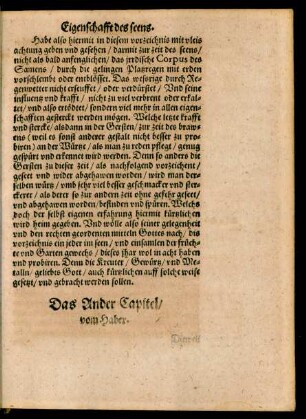 Eigenschafft des seens.
Habe also hiermit in diesem vorzeichnis mit vleis
achtung geben vnd gesehen / darmit zur zeit des seens /
nicht als bald anfenglichen / das jrdische Corpus des
Samens / durch die gelingen Platzregen mit erden
vorschlembt oder entblösset. Das vrsorige durch Re-
genwetter nicht erseuffet / oder verdürstet / Vnd seine
influentz vnd krafft / nicht zu viel verbrent oder erkal-
tet / vnd also ertödtet / sondern viel mehr in allen eigen-
schafften gesterckt werden mögen. Welche letzte krafft
vnd stercke / als dann an der Gersten / zur zeit des braw-
ens ( weil es sonst anderer gestalt nicht besser zu pro-
biren ) an der Würtze / als man zu reden pflegt / genug
gespürt vnd erkennet wird werden. Denn so anders die
Gersten zu dieser zeit / als nachfolgend vorzeichnet /
geseet vnd wider abgehawen worden / wird man der-
selben würtz / vmb sehr viel besser geschmacker vnd ster-
ckere / als derer so zur andern zeit ohne gefehr geseet /
vnd abgehawen worden / befinden vnd spüren. Welchs
doch der selbst eigenen erfahrung hiermit kürtzlichen
wird heim gegeben. Vnd wölle also seiner gelegenheit
vnd den rechten geordenten mitteln Gottes nach / dis
vorzeichnis ein jeder im seen / vnd einsamlen der früch-
te vnd Garten gewechs / dieses jhar wol in acht haben
vnd probiren. Denn die Kreuter / Gewürtz / vnd Me-
talln / geliebts Gott / auch kürtzlichen auff solche weise
gesetzt / vnd gebracht werden sollen.
Das Ander Capitel /
vom Haber.